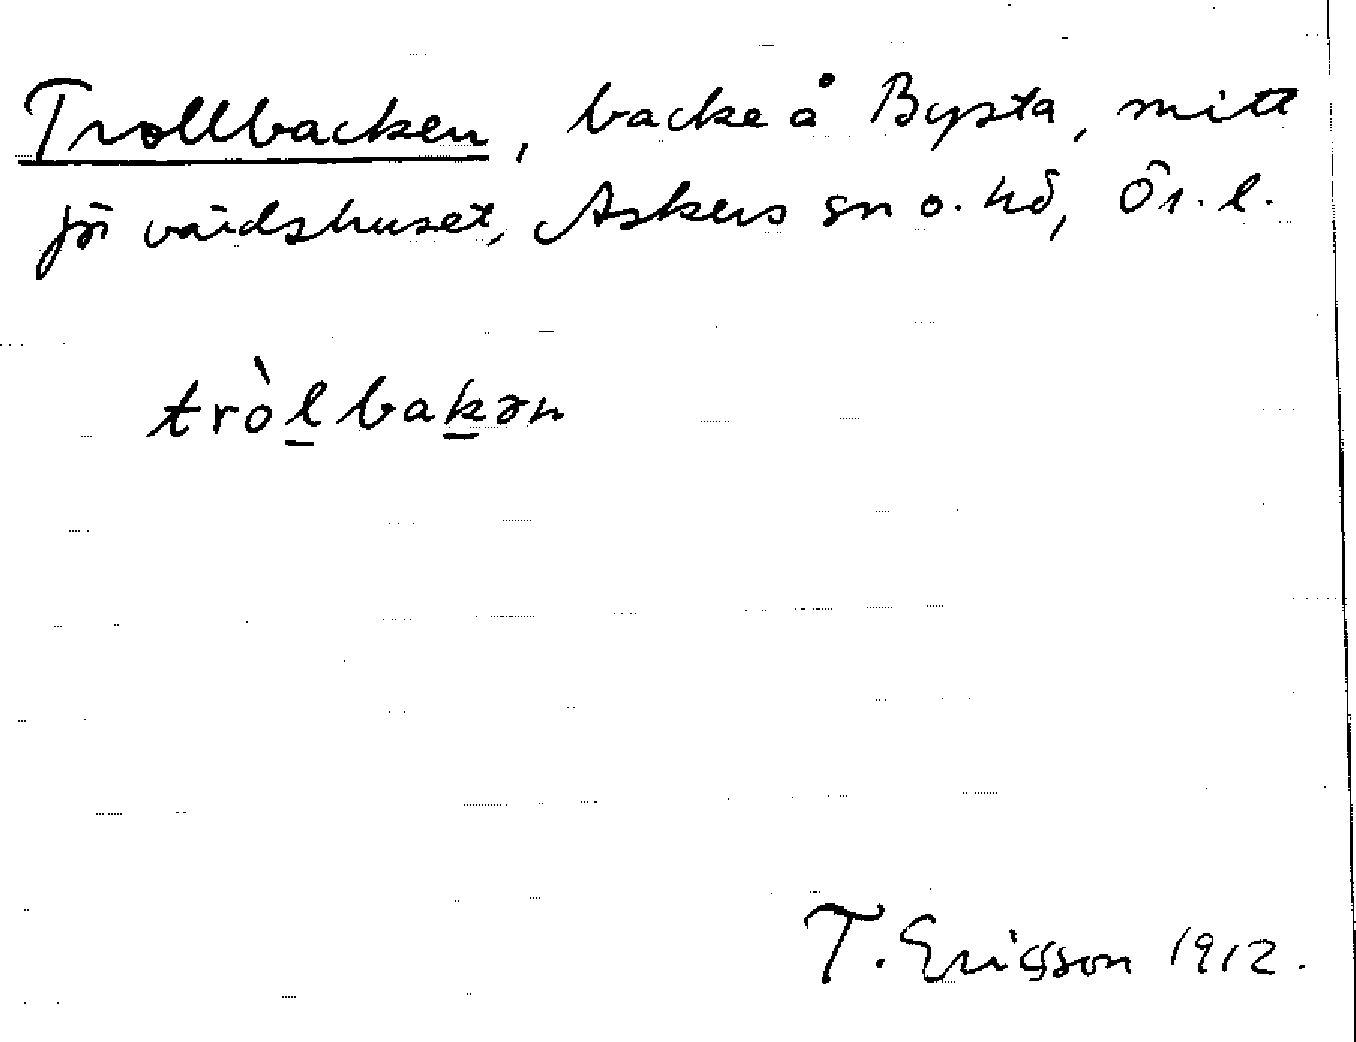 Trollbacken, backe å Bysta, mitt
för värdshuset, Askers sn o. hd, Ör. l.
tròl̲bak̲ən
T. Ericsson 1912.